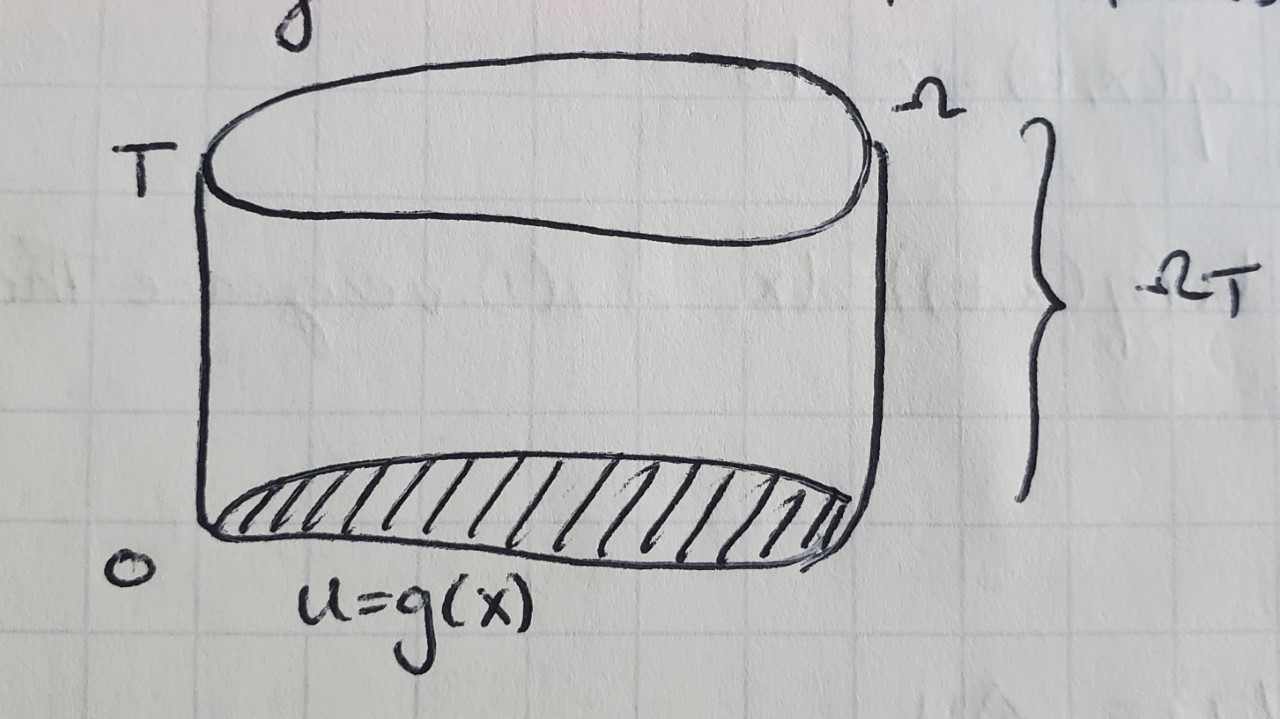 Ω
T
ΩT
O
u=g(x)